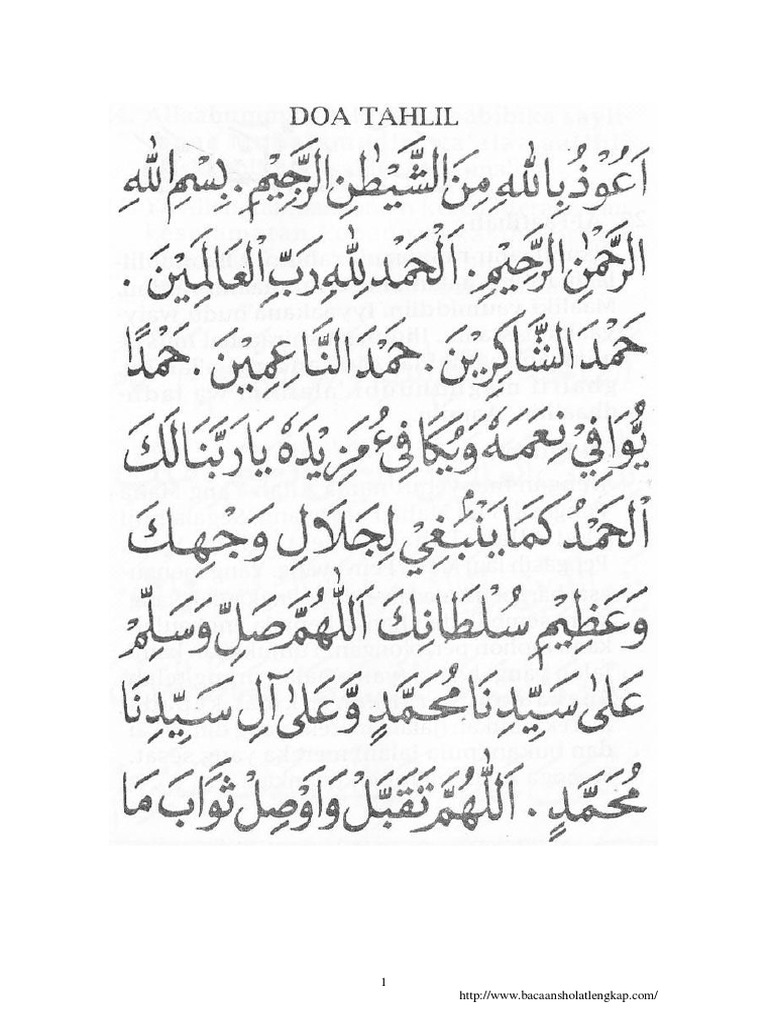 DOA TAHLIL
اَعُوْذُ بِاللهِ مِنَ الشَّيْطٰنِ الرَّجِيْمِ. بِسْمِ اللهِ
الرَّحْمٰنِ الرَّحِيْمِ. اَلْحَمْدُ لِلّٰهِ رَبِّ الْعَالَمِيْنَ.
حَمْدَ الشَّاكِرِيْنَ. حَمْدَ النَّاعِمِيْنَ. حَمْدًا
يُّوَافِيْ نِعَمَهٗ وَيُكَافِئُ مَزِيْدَهٗ يَارَبَّنَالَكَ
الْحَمْدُ كَمَا يَنْۢبَغِيْ لِجَلَالِ وَجْهِكَ
وَعَظِيْمِ سُلْطَانِكَ اَللّٰهُمَّ صَلِّ وَسَلِّمْ
عَلٰى سَيِّدِنَا مُحَمَّدٍ وَّعَلٰى آلِ سَيِّدِنَا
مُحَمَّدٍ. اَللّٰهُمَّ تَقَبَّلْ وَاَوْصِلْ ثَوَابَ مَا
1
http://www.bacaansholatlengkap.com/